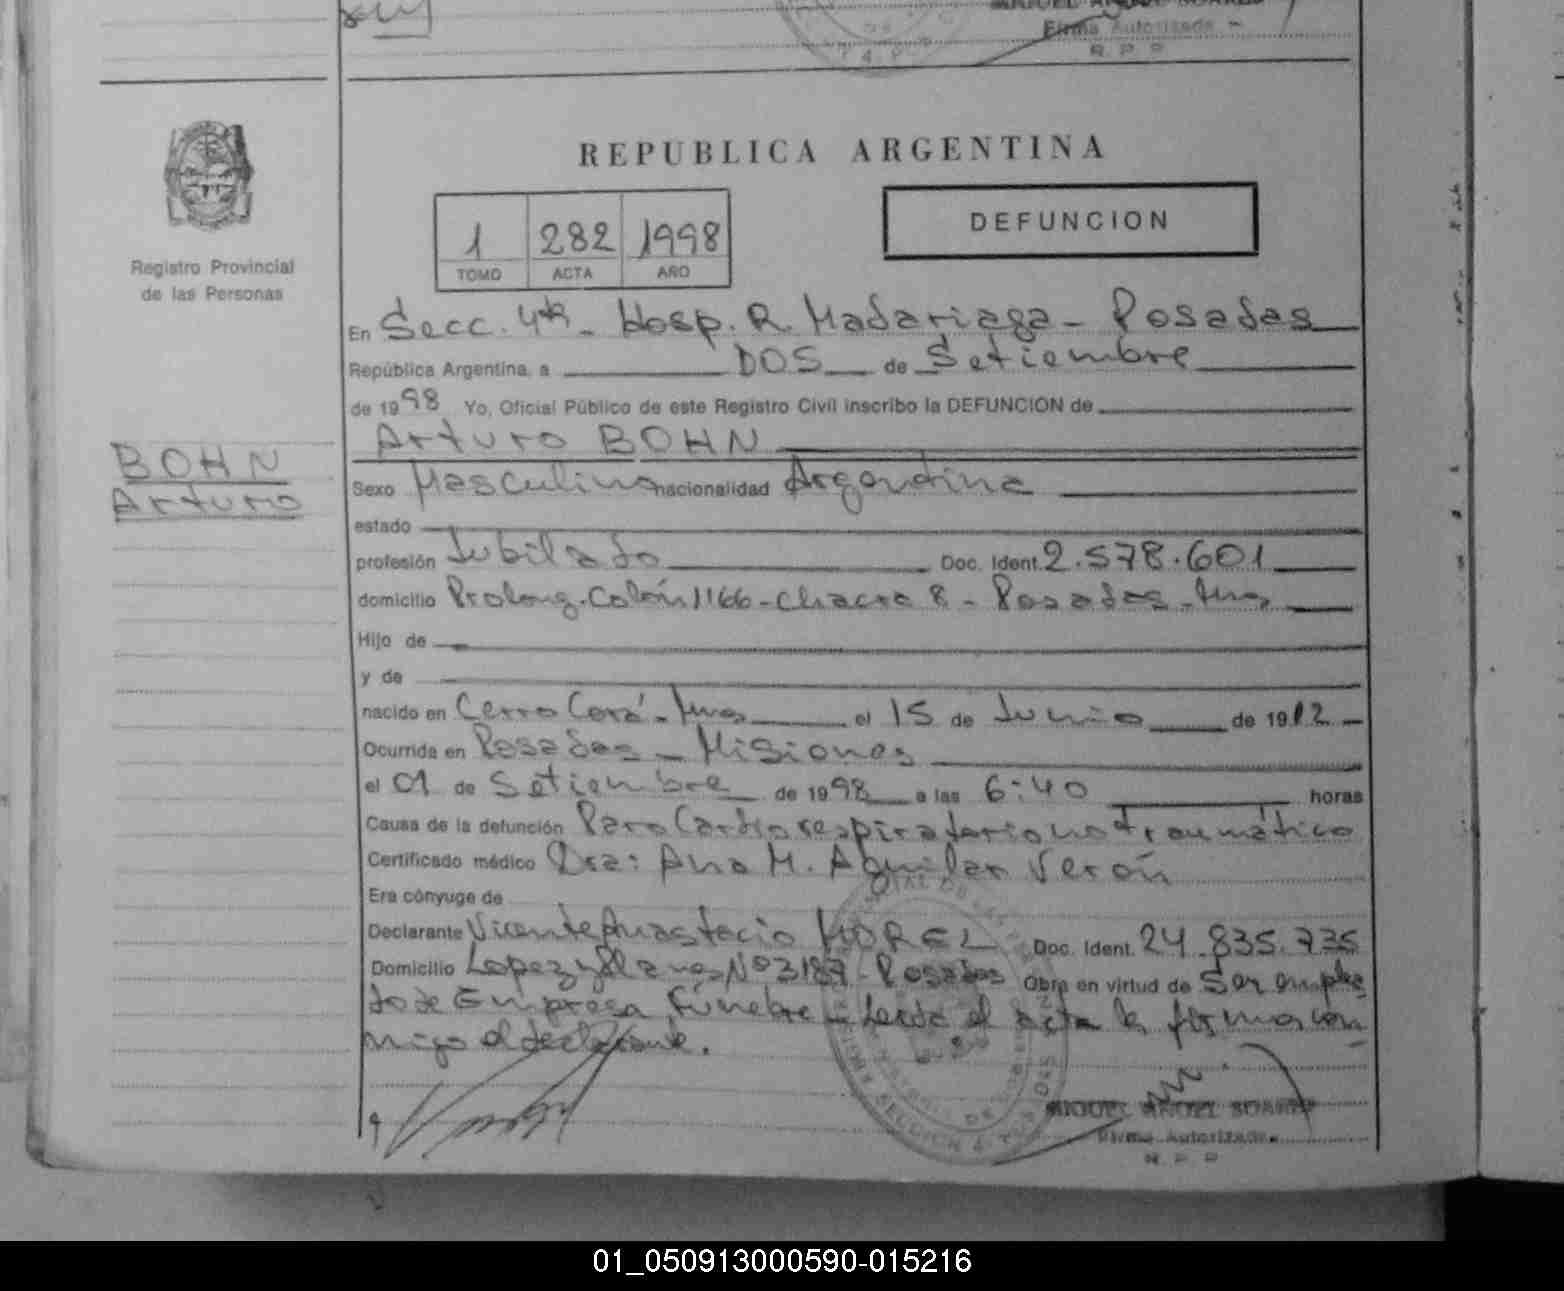 MIGUEL ANGEL SOAREZ
Firma Autorizada
R. P. P.
REPUBLICA ARGENTINA
1 282 1998
TOMO ACTA AÑO
DEFUNCION
Registro Provincial
de las Personas
En Secc. 4ta - Hosp. R. Madariaga - Posadas
República Argentina, a DOS de Setiembre
de 1998 Yo, Oficial Público de este Registro Civil inscribo la DEFUNCION de
Arturo BOHN
BOHN
Arturo
Sexo Masculino nacionalidad Argentina
estado
profesión Jubilado Doc. Ident. 2.578.601
domicilio Prolong. Colón 1166 - Chacra 8 - Posadas - Mnes
Hijo de
y de
nacido en Cerro Corá - Mnes el 15 de Junio de 1912
Ocurrida en Posadas - Misiones
el 01 de Setiembre de 1998 a las 6:40 horas
Causa de la defunción Paro Cardiorespiratorio no traumático
Certificado médico Dra: Ana M. Aguilar Verón
Era cónyuge de
Declarante Vicente Anastacio MOREL Doc. Ident. 24.835.735
Domicilio Lopez y Planes Nº 3187 - Posadas Obra en virtud de Ser emplea
do de Empresa Fúnebre - Leida el acta la firma con
migo el declarante.
MIGUEL ANGEL SOAREZ
Firma Autorizada
R. P. P.
01_050913000590-015216